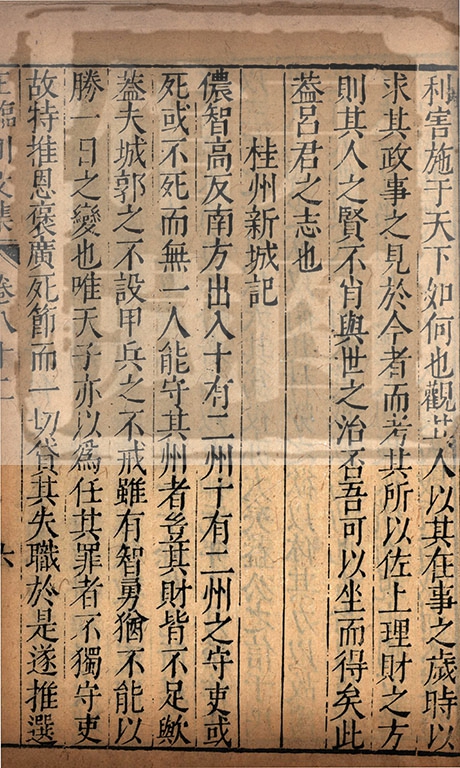 利害施于天下如何也觀其人以其在事之歲時以
求其政事之見於今者而考其所以佐上理財之方
則其人之賢不肖與世之治否吾可以坐而得矣此
葢呂君之志也
桂州新城記
儂智高反南方出入十有二州十有二州之守吏或
死或不死而無一人能守其州者豈其財皆不足歟
葢夫城郭之不設甲兵之不戒雖有智勇猶不能以
勝一日之變也唯天子亦以爲任其罪者不獨守吏
故特推恩襃廣死節而一切貸其失職於是遂推選
王臨川文集 卷八十二 六